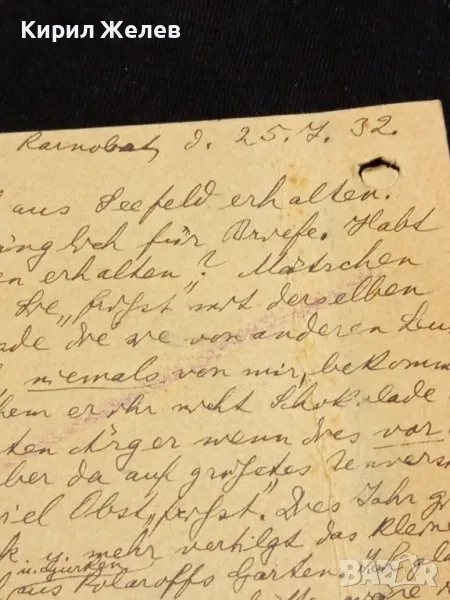 Кирил Желев
Karnobat, d. 25.7.32.
aus Seefeld erhalten.
für Briefe. Habt
en erhalten? Mätschen
Sie „frisst" mit derselben
ade die sie von anderen Leu
niemals von mir bekomm
er ihr nicht Schokolade
ten Ärger wenn dies vor
ber da auf grösstes Unvers
viel Obst „frisst". Dies Jahr
k u. mehr vertilgt das kleine
u. Gurken
aus Kolaroffs Garten.
bazar.bg